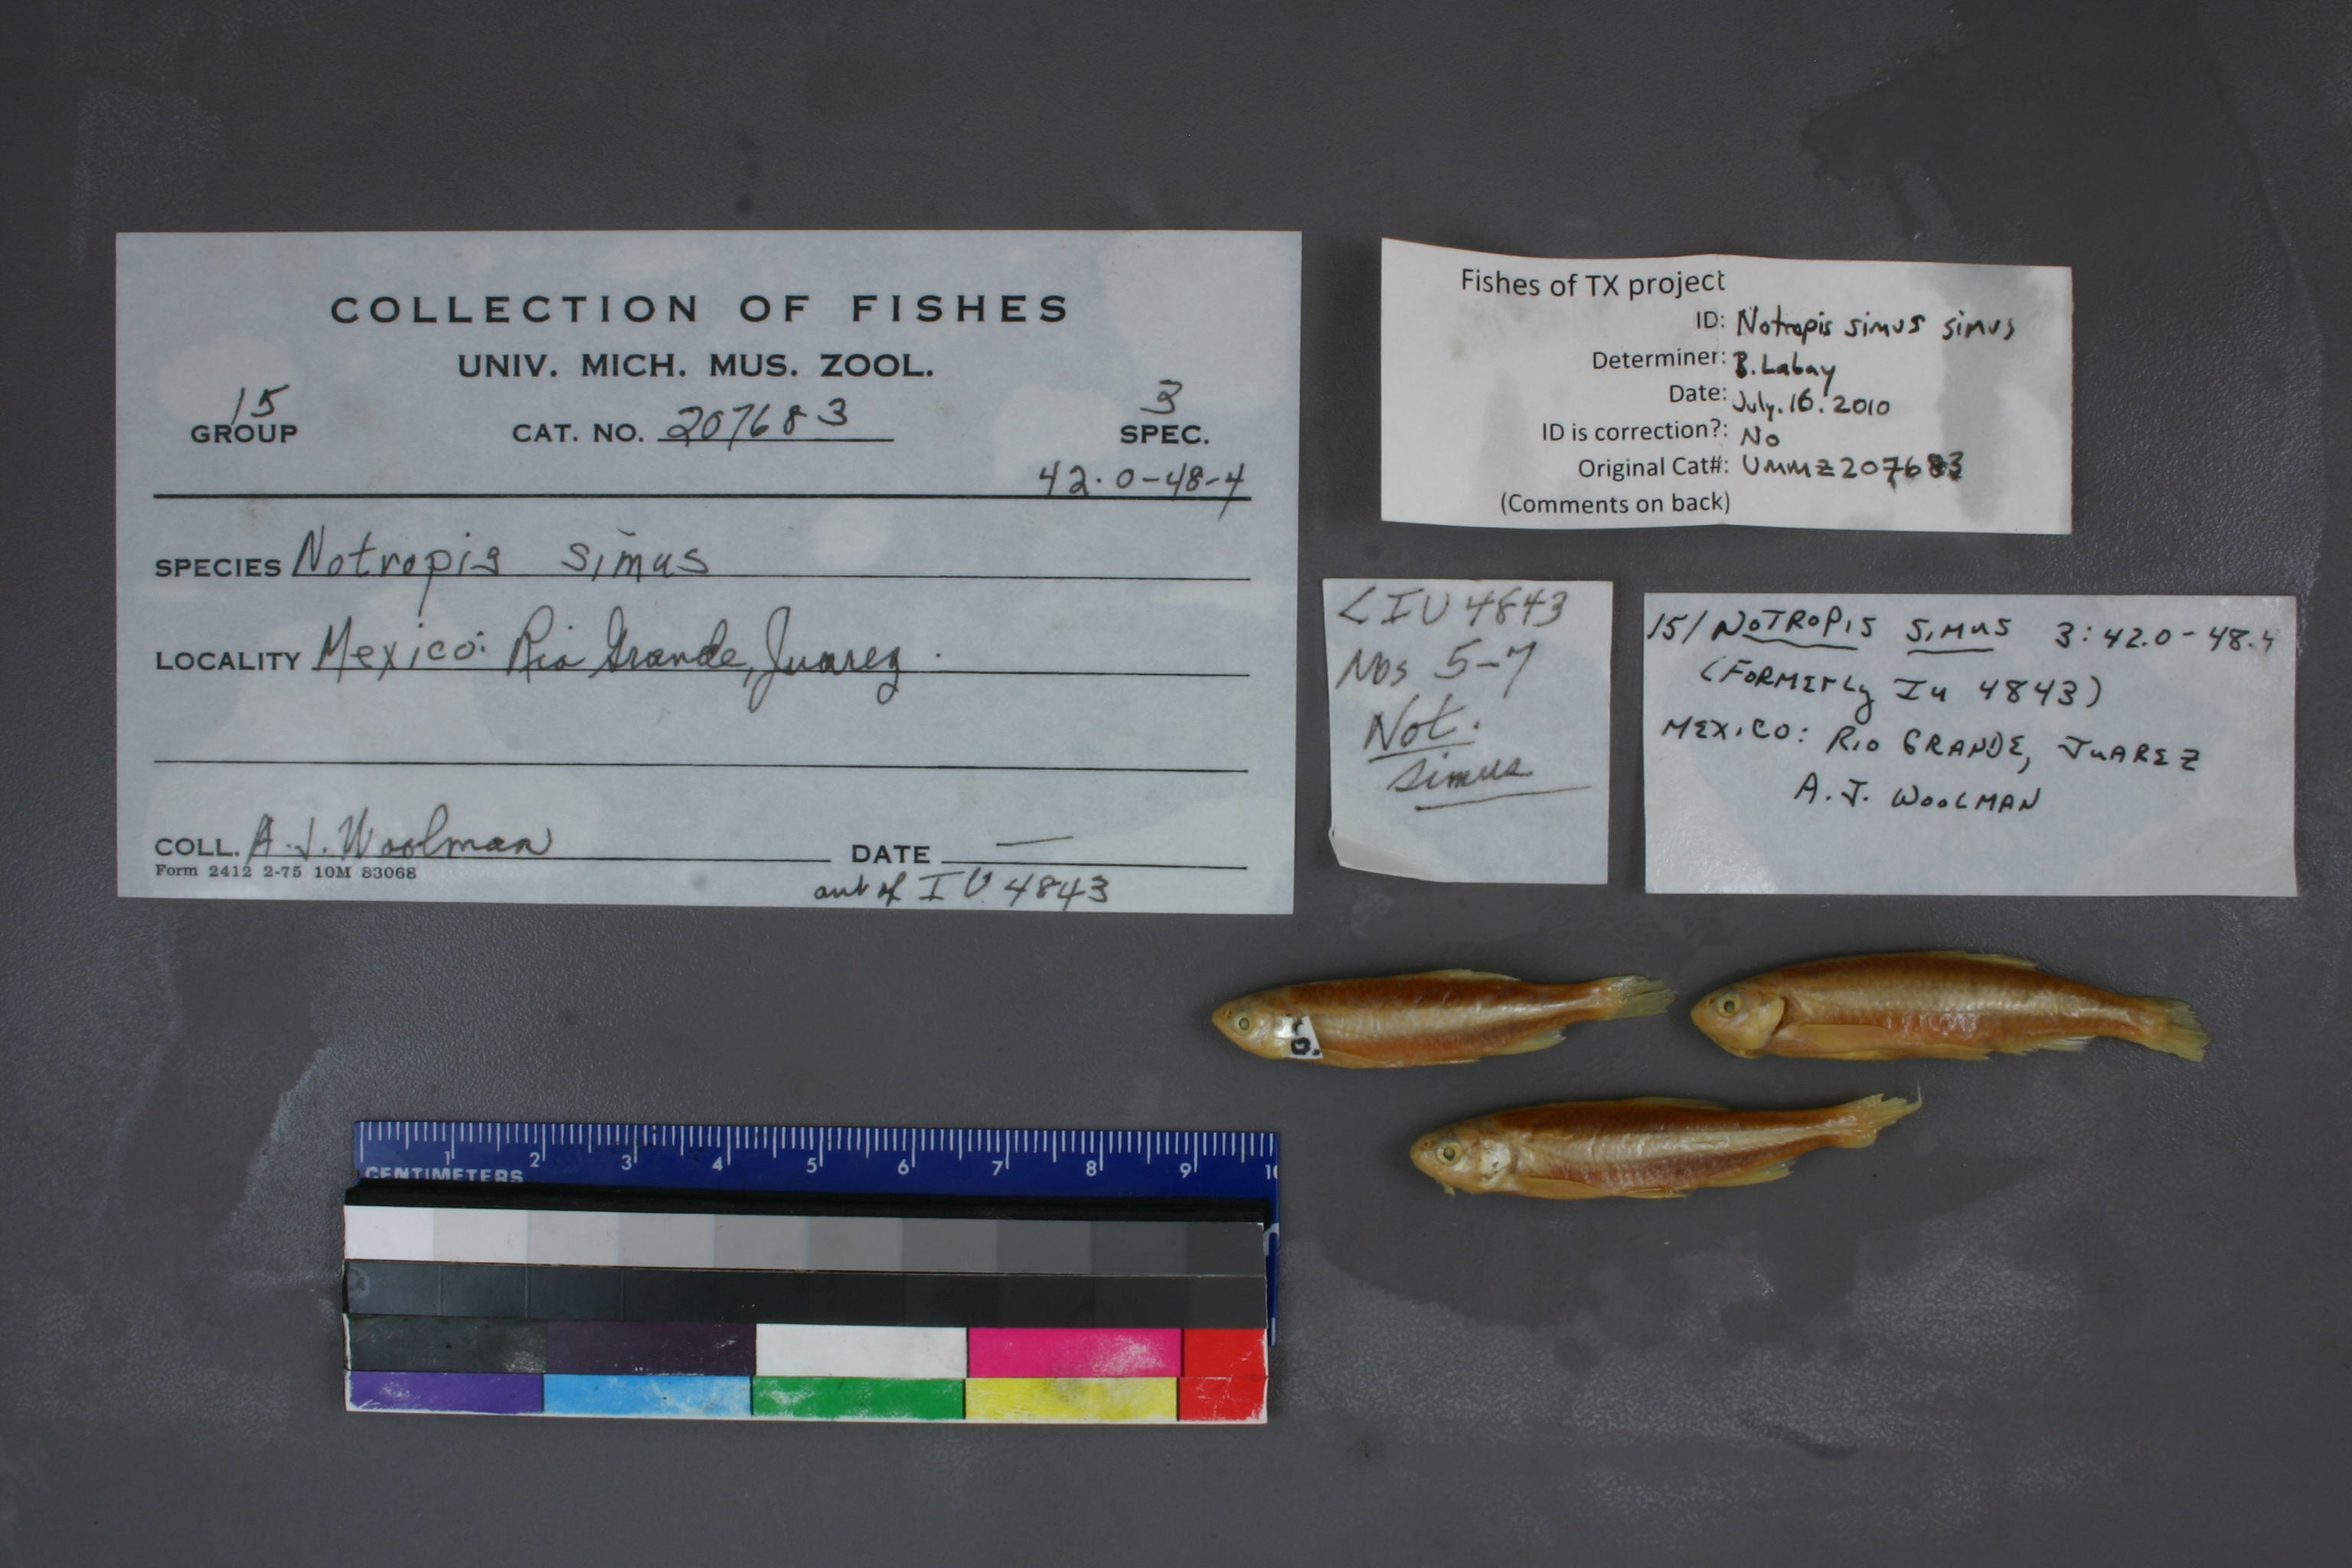 COLLECTION OF FISHES
UNIV. MICH. MUS. ZOOL.
15
GROUP
CAT. NO. 207683
3
SPEC.
42.0-48-4
SPECIES Notropis simus
LOCALITY Mexico: Rio Grande, Juarez.
COLL. A.J. Woolman
DATE —
Form 2412 2-75 10M 83068
out of IU 4843
Fishes of TX project
ID: Notropis simus simus
Determiner: B. Labay
Date: July.16.2010
ID is correction?: No
Original Cat#: UMMZ207683
(Comments on back)
<IU 4843
Nos 5-7
Not.
simus
15/ NOTROPIS SIMUS 3:42.0-48.4
(FORMErLy Iu 4843)
MEXICO: RIO GRANDE, JuAREZ
A.J. WOOLMAN
1 2 3 4 5 6 7 8 9 10
CENTIMETERS